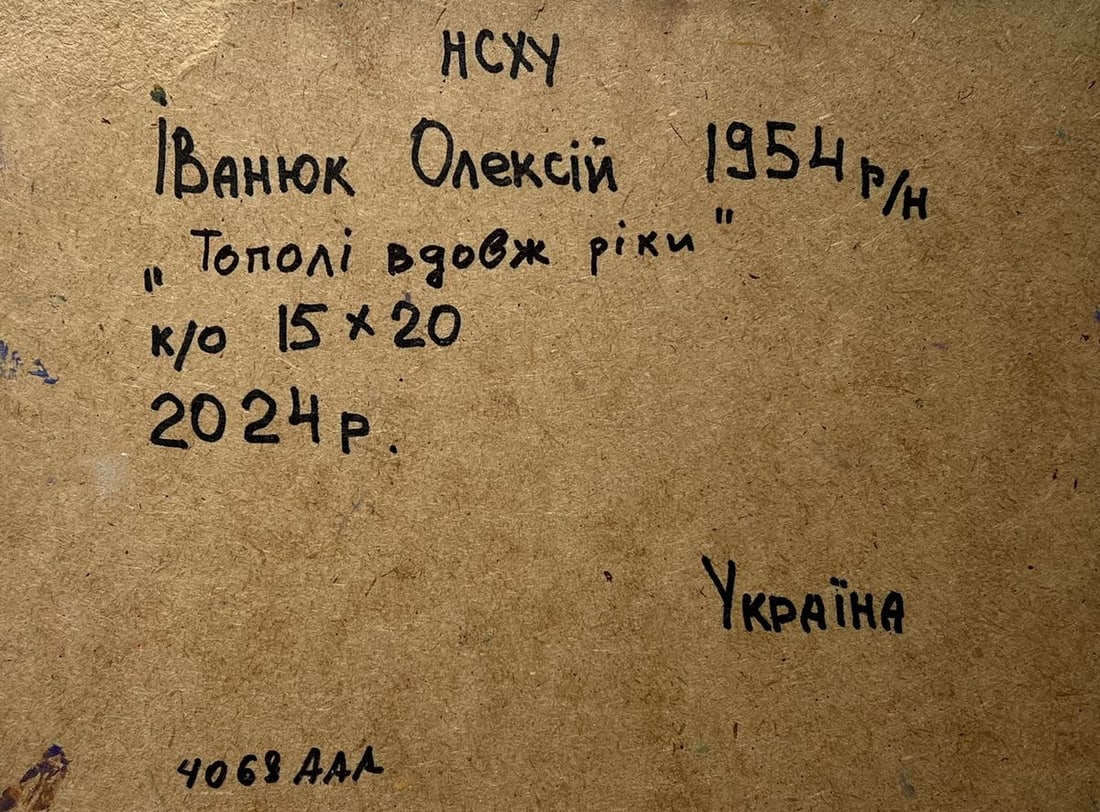 НСХУ
Іванюк Олексій 1954 р/н
„Тополі вдовж ріки"
к/о 15 х 20
2024 р.
Україна
4068 ДАЛ